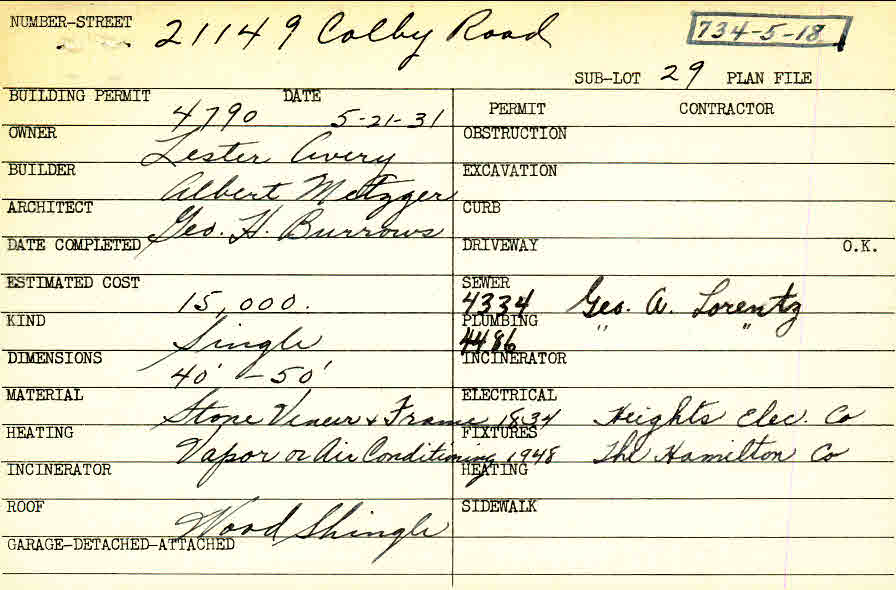 NUMBER-STREET 21149 Colby Road 734-5-18
SUB-LOT 29 PLAN FILE
BUILDING PERMIT 4790 DATE 5-21-31
OWNER Lester Avery
BUILDER Albert Metzger
ARCHITECT Geo. H. Burrows
DATE COMPLETED
ESTIMATED COST 15,000.
KIND Single
DIMENSIONS 40' - 50'
MATERIAL Stone Veneer & Frame
HEATING Vapor or Air Conditioning
INCINERATOR
ROOF Wood Shingle
GARAGE-DETACHED-ATTACHED
PERMIT CONTRACTOR
OBSTRUCTION
EXCAVATION
CURB
DRIVEWAY O.K.
SEWER 4334 Geo. A. Lorentz
PLUMBING 4486 " "
INCINERATOR
ELECTRICAL 1834 Heights Elec. Co
FIXTURES 1948 The Hamilton Co
HEATING
SIDEWALK